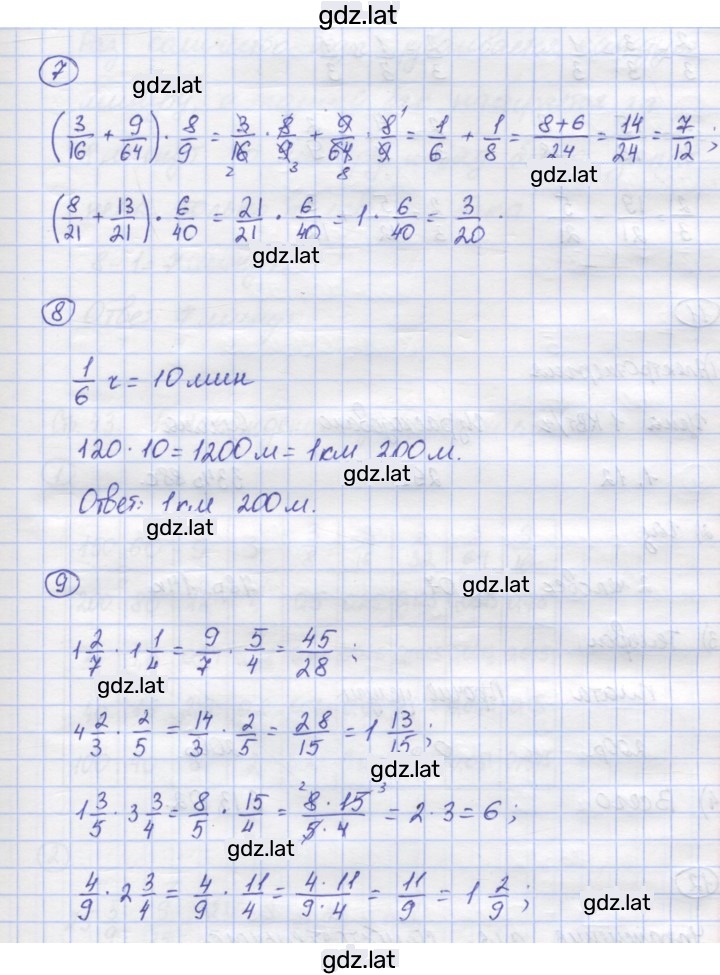 gdz.lat
7
gdz.lat
(3/16 + 9/64) · 8/9 = 3/16 · 8/9 + 9/64 · 8/9 = 1/6 + 1/8 = 8+6/24 = 14/24 = 7/12 ;
gdz.lat
(8/21 + 13/21) · 6/40 = 21/21 · 6/40 = 1 · 6/40 = 3/20 .
gdz.lat
8
1/6 ч = 10 мин
120 · 10 = 1200 м = 1 км 200 м.
gdz.lat
Ответ: 1 км 200 м.
gdz.lat
9
gdz.lat
1 2/7 · 1 1/4 = 9/7 · 5/4 = 45/28 ;
gdz.lat
4 2/3 · 2/5 = 14/3 · 2/5 = 28/15 = 1 13/15 ;
gdz.lat
1 3/5 · 3 3/4 = 8/5 · 15/4 = 8 · 15/5 · 4 = 2 · 3 = 6 ;
gdz.lat
4/9 · 2 3/4 = 4/9 · 11/4 = 4 · 11/9 · 4 = 11/9 = 1 2/9 ;
gdz.lat
gdz.lat